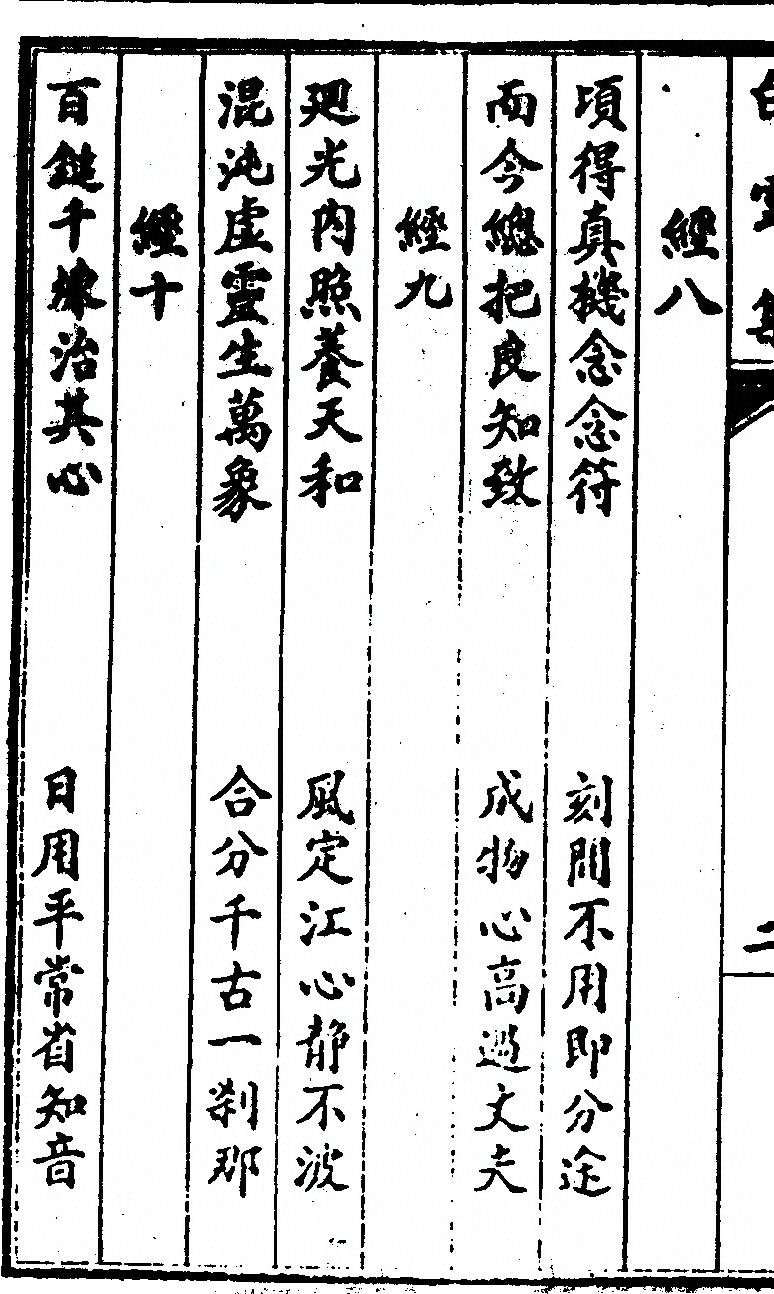 白雲集
二
經八
頃得真機念念符 刻間不用即分途
而今總把良知致 成物心高過丈夫
經九
廻光內照養天和 風定江心靜不波
混沌虛靈生萬象 合分千古一剎那
經十
百鎚千煉治其心 日用平常省知音